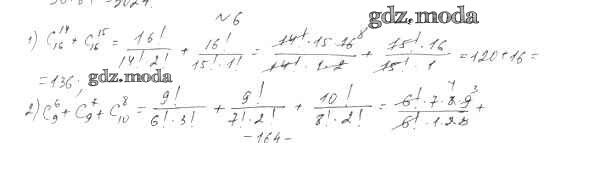 №6
gdz.moda
1) C₁₆¹⁴ + C₁₆¹⁵ = 16! / 14! 2! + 16! / 15! · 1! = 14! · 15 · 16 8 / 14! · 1 · 2 + 15! · 16 / 15! · 1 = 120 + 16 =
= 136;
gdz.moda
2) C₉⁶ + C₉⁷ + C₁₀⁸ = 9! / 6! · 3! + 9! / 7! · 2! + 10! / 8! · 2! = 6! · 7 · 8 4 · 9 3 / 6! · 1 · 2 · 3 +
- 164 -